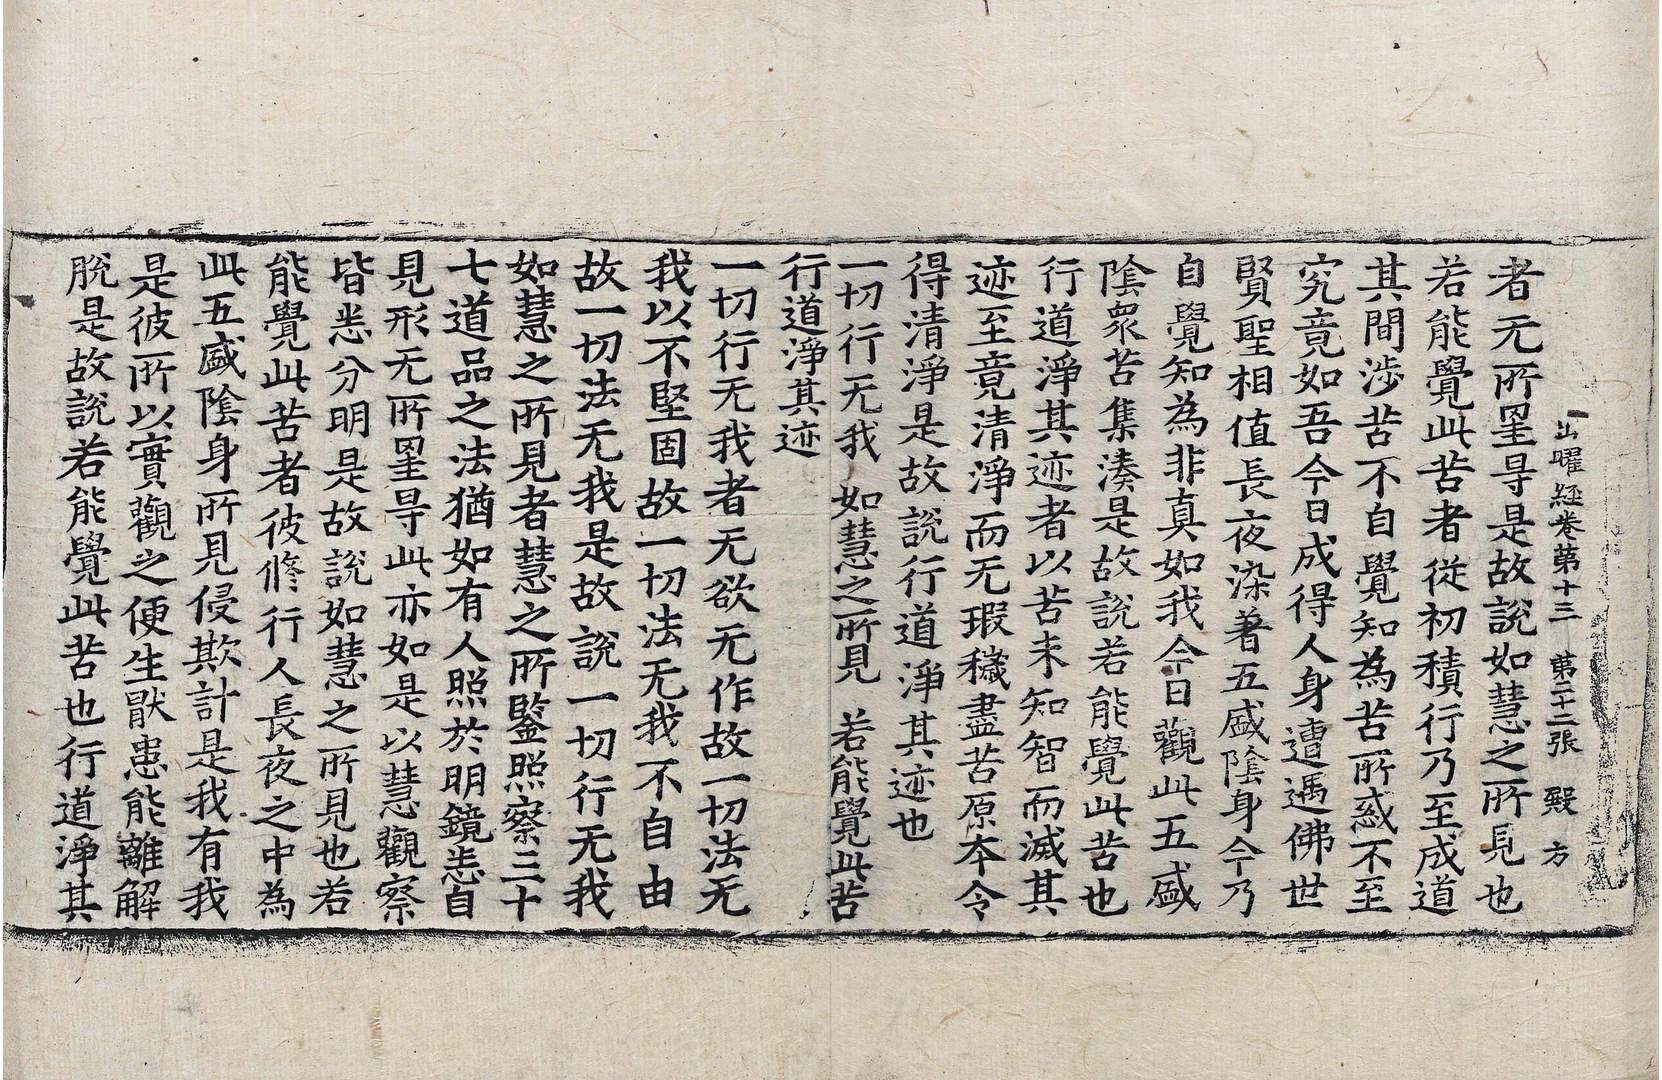 出曜經卷第十三　第二十二張　殿　方
者无所罣㝵是故說如慧之所見也
若能覺此苦者從初積行乃至成道
其間涉苦不自覺知為苦所惑不至
究竟如吾今日成得人身遭遇佛世
賢聖相值長夜染著五盛陰身今乃
自覺知為非真如我今日觀此五盛
陰衆苦集湊是故說若能覺此苦也
行道淨其迹者以苦未知智而滅其
迹至竟清淨而无瑕穢盡苦原本令
得清淨是故說行道淨其迹也
一切行无我　如慧之所見　若能覺此苦
行道淨其迹
一切行无我者无欲无作故一切法无
我以不堅固故一切法无我不自由
故一切法无我是故說一切行无我
如慧之所見者慧之所鑒照察三十
七道品之法猶如有人照於明鏡悉自
見形无所罣㝵此亦如是以慧觀察
皆悉分明是故說如慧之所見也若
能覺此苦者彼修行人長夜之中為
此五盛陰身所見侵欺計是我有我
是彼所以實觀之便生猒患能離解
脫是故說若能覺此苦也行道淨其